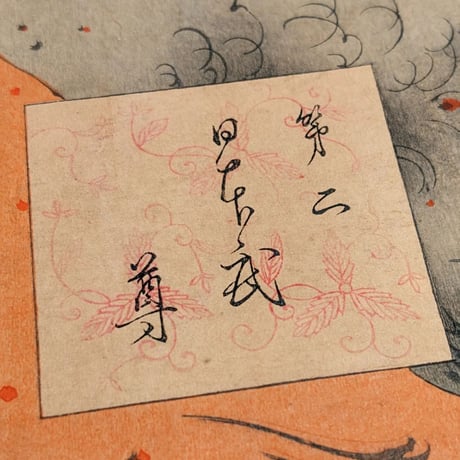 第二
日本武
尊